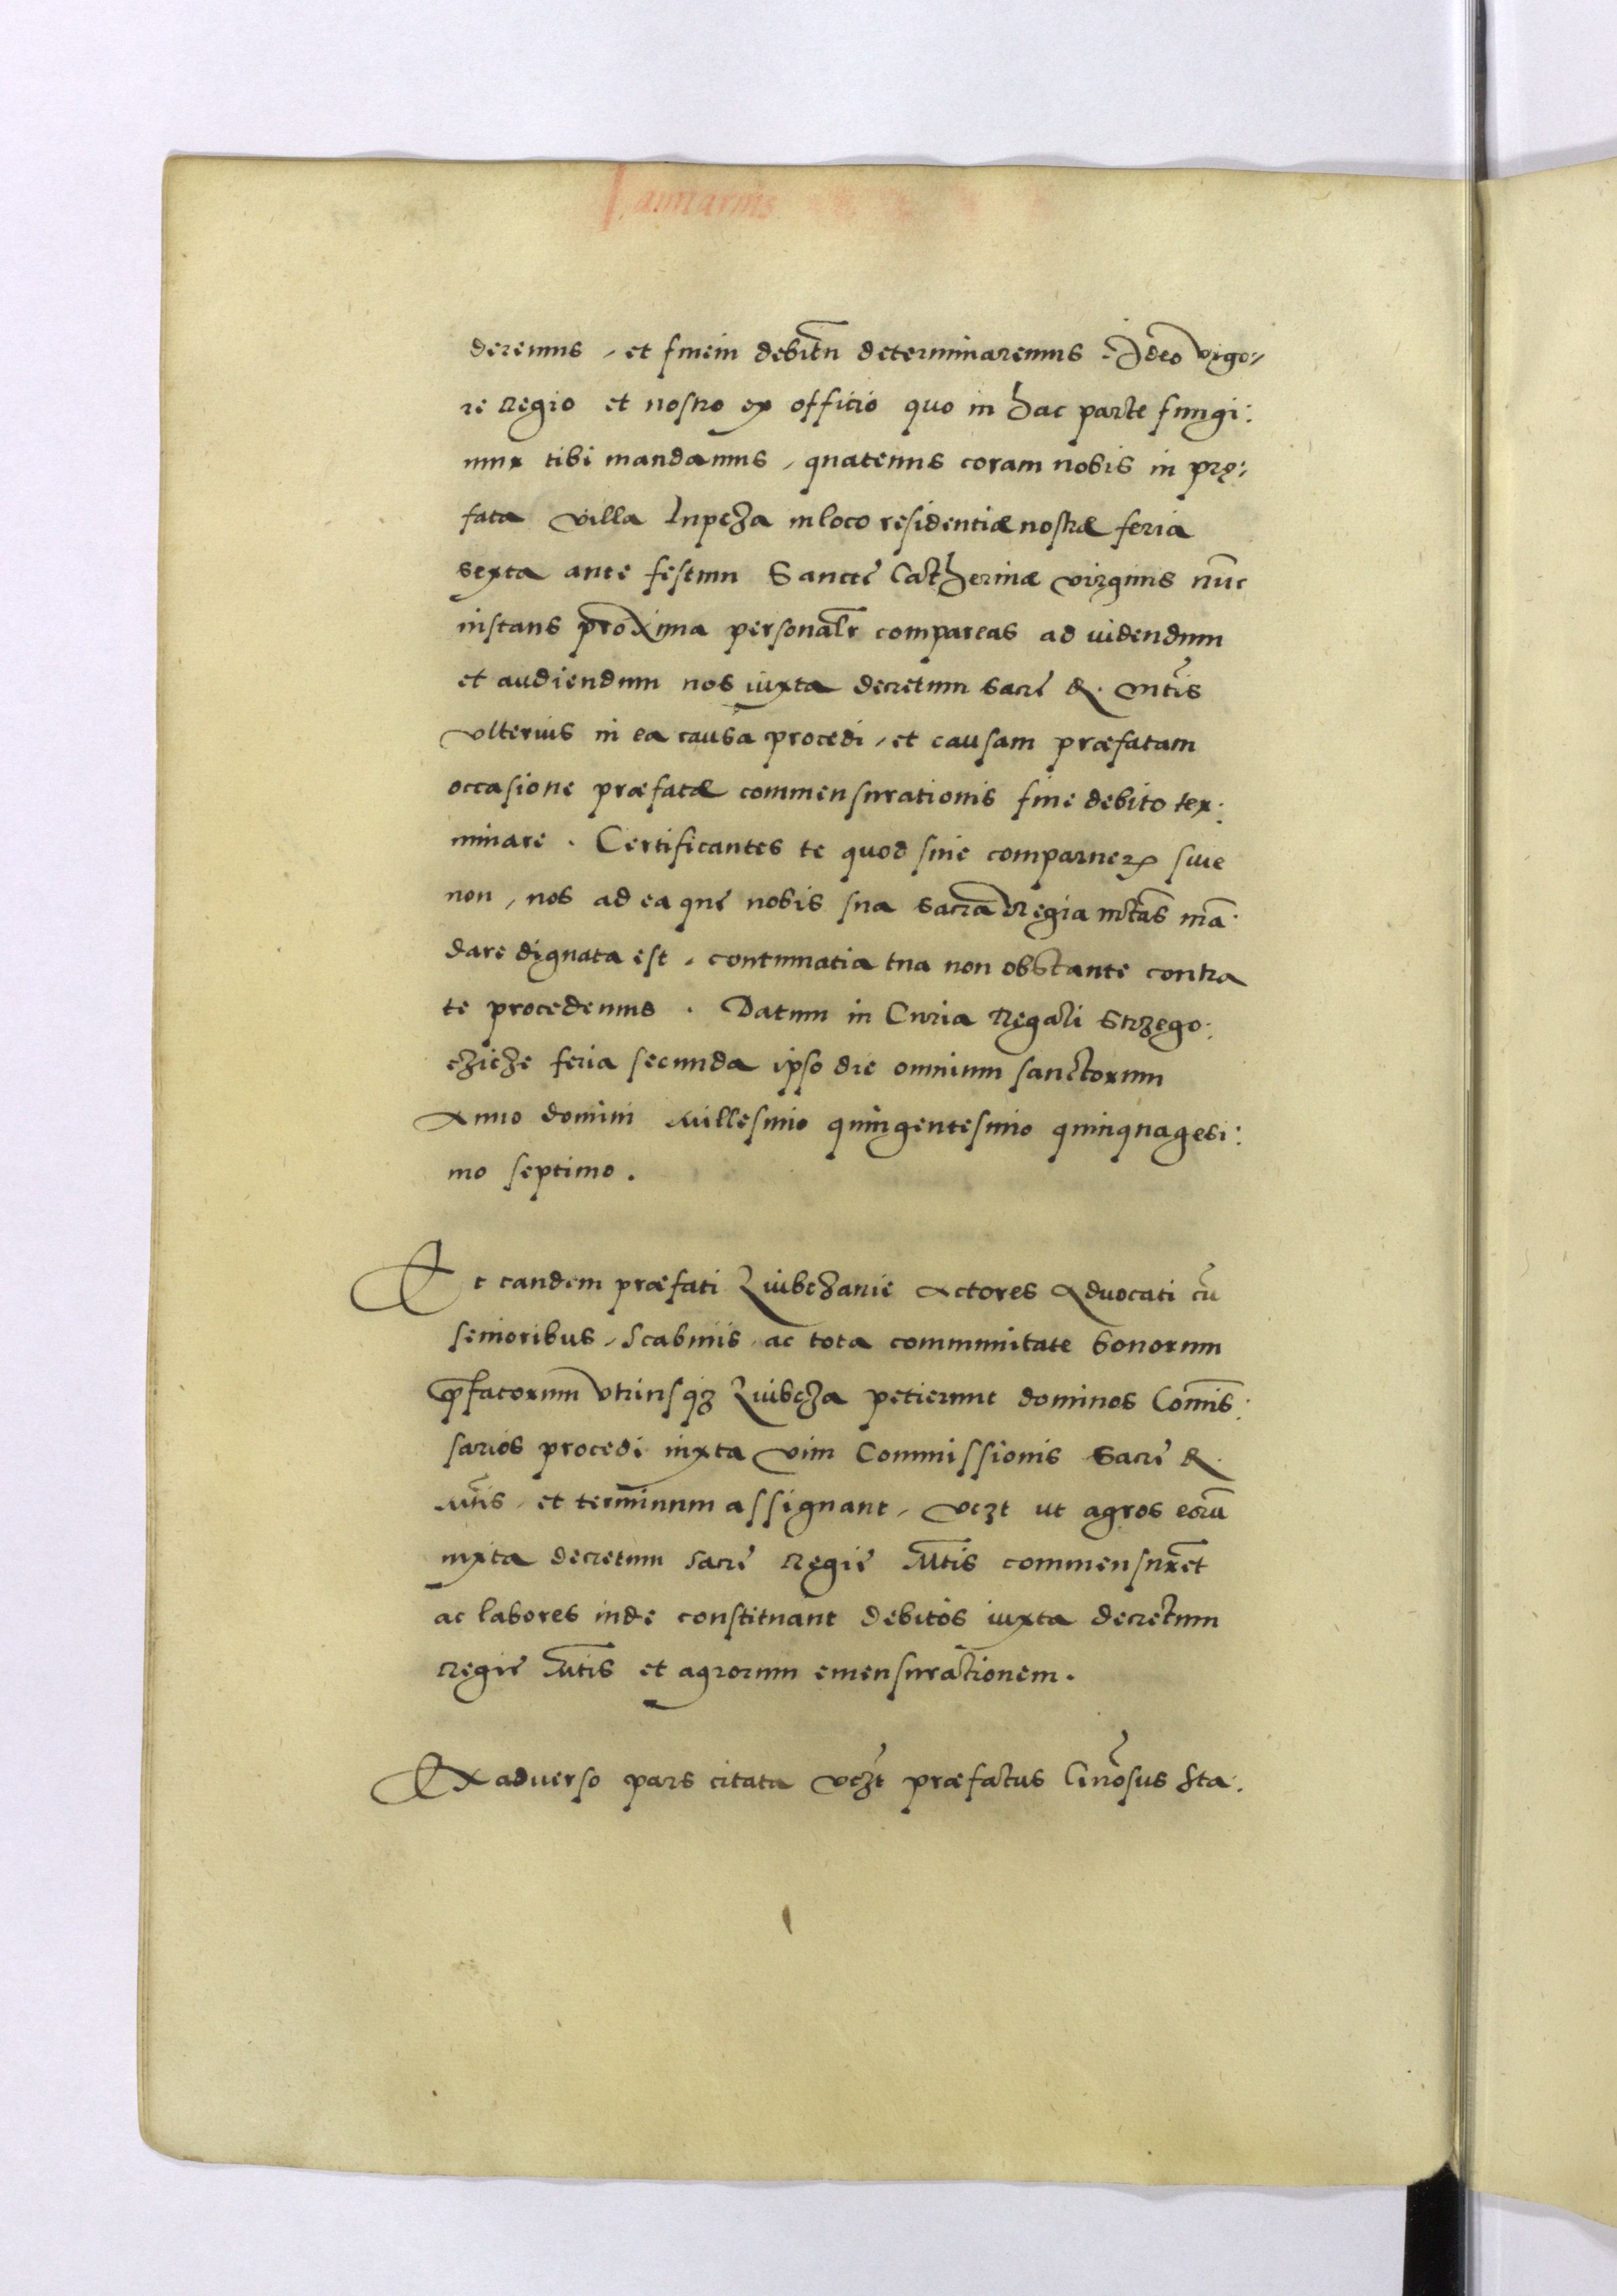 Januarius
deremus, et finem debitũ determinaremus. Ideo vigo:
re Regio et nostro ex officio quo in hac parte fungi:
mur tibi mandamus, quatenus coram nobis in prę:
fata villa Lupcza in loco residentiæ nostræ feria
sexta ante festum Sanctę Catherinæ virginis nũc
instans proxima personalr̃ compareas ad videndum
et audiendum nos iuxta decretum sacrę R. Mtis
vlterius in ea causa procedi, et causam præfatam
occasione præfatæ commensurationis fine debito ter:
minare. Certificantes te quod siue comparuer̃ siue
non, nos ad ea quę nobis sua sacra Regia Mtas mã:
dare dignata est, contumatia tua non obstante contra
te procedemus. Datum in Curia Regali Strzego:
czicze feria secunda ipso die omnium sanctorum
Anno domini Millesimo quingentesimo quinquagesi:
mo septimo.
Et tandem præfati Lubczanie Actores Aduocati cũ
senioribus, Scabinis, ac tota communitate bonorum
p̃fatorum vtriusq3 Lubcza petierunt dominos Com̃is:
sarios procedi iuxta vim Commissionis Sacrę R.
Mtis, et terminum assignant, vczt ut agros eorũ
iuxta decretum Sacrę Regię Mtis commensuret
ac labores inde constituant debitos iuxta decretum
Regię Mtis et agrorum emensurationem.
Ex aduerso pars citata vczt præfatus Gn̄osus Sta: